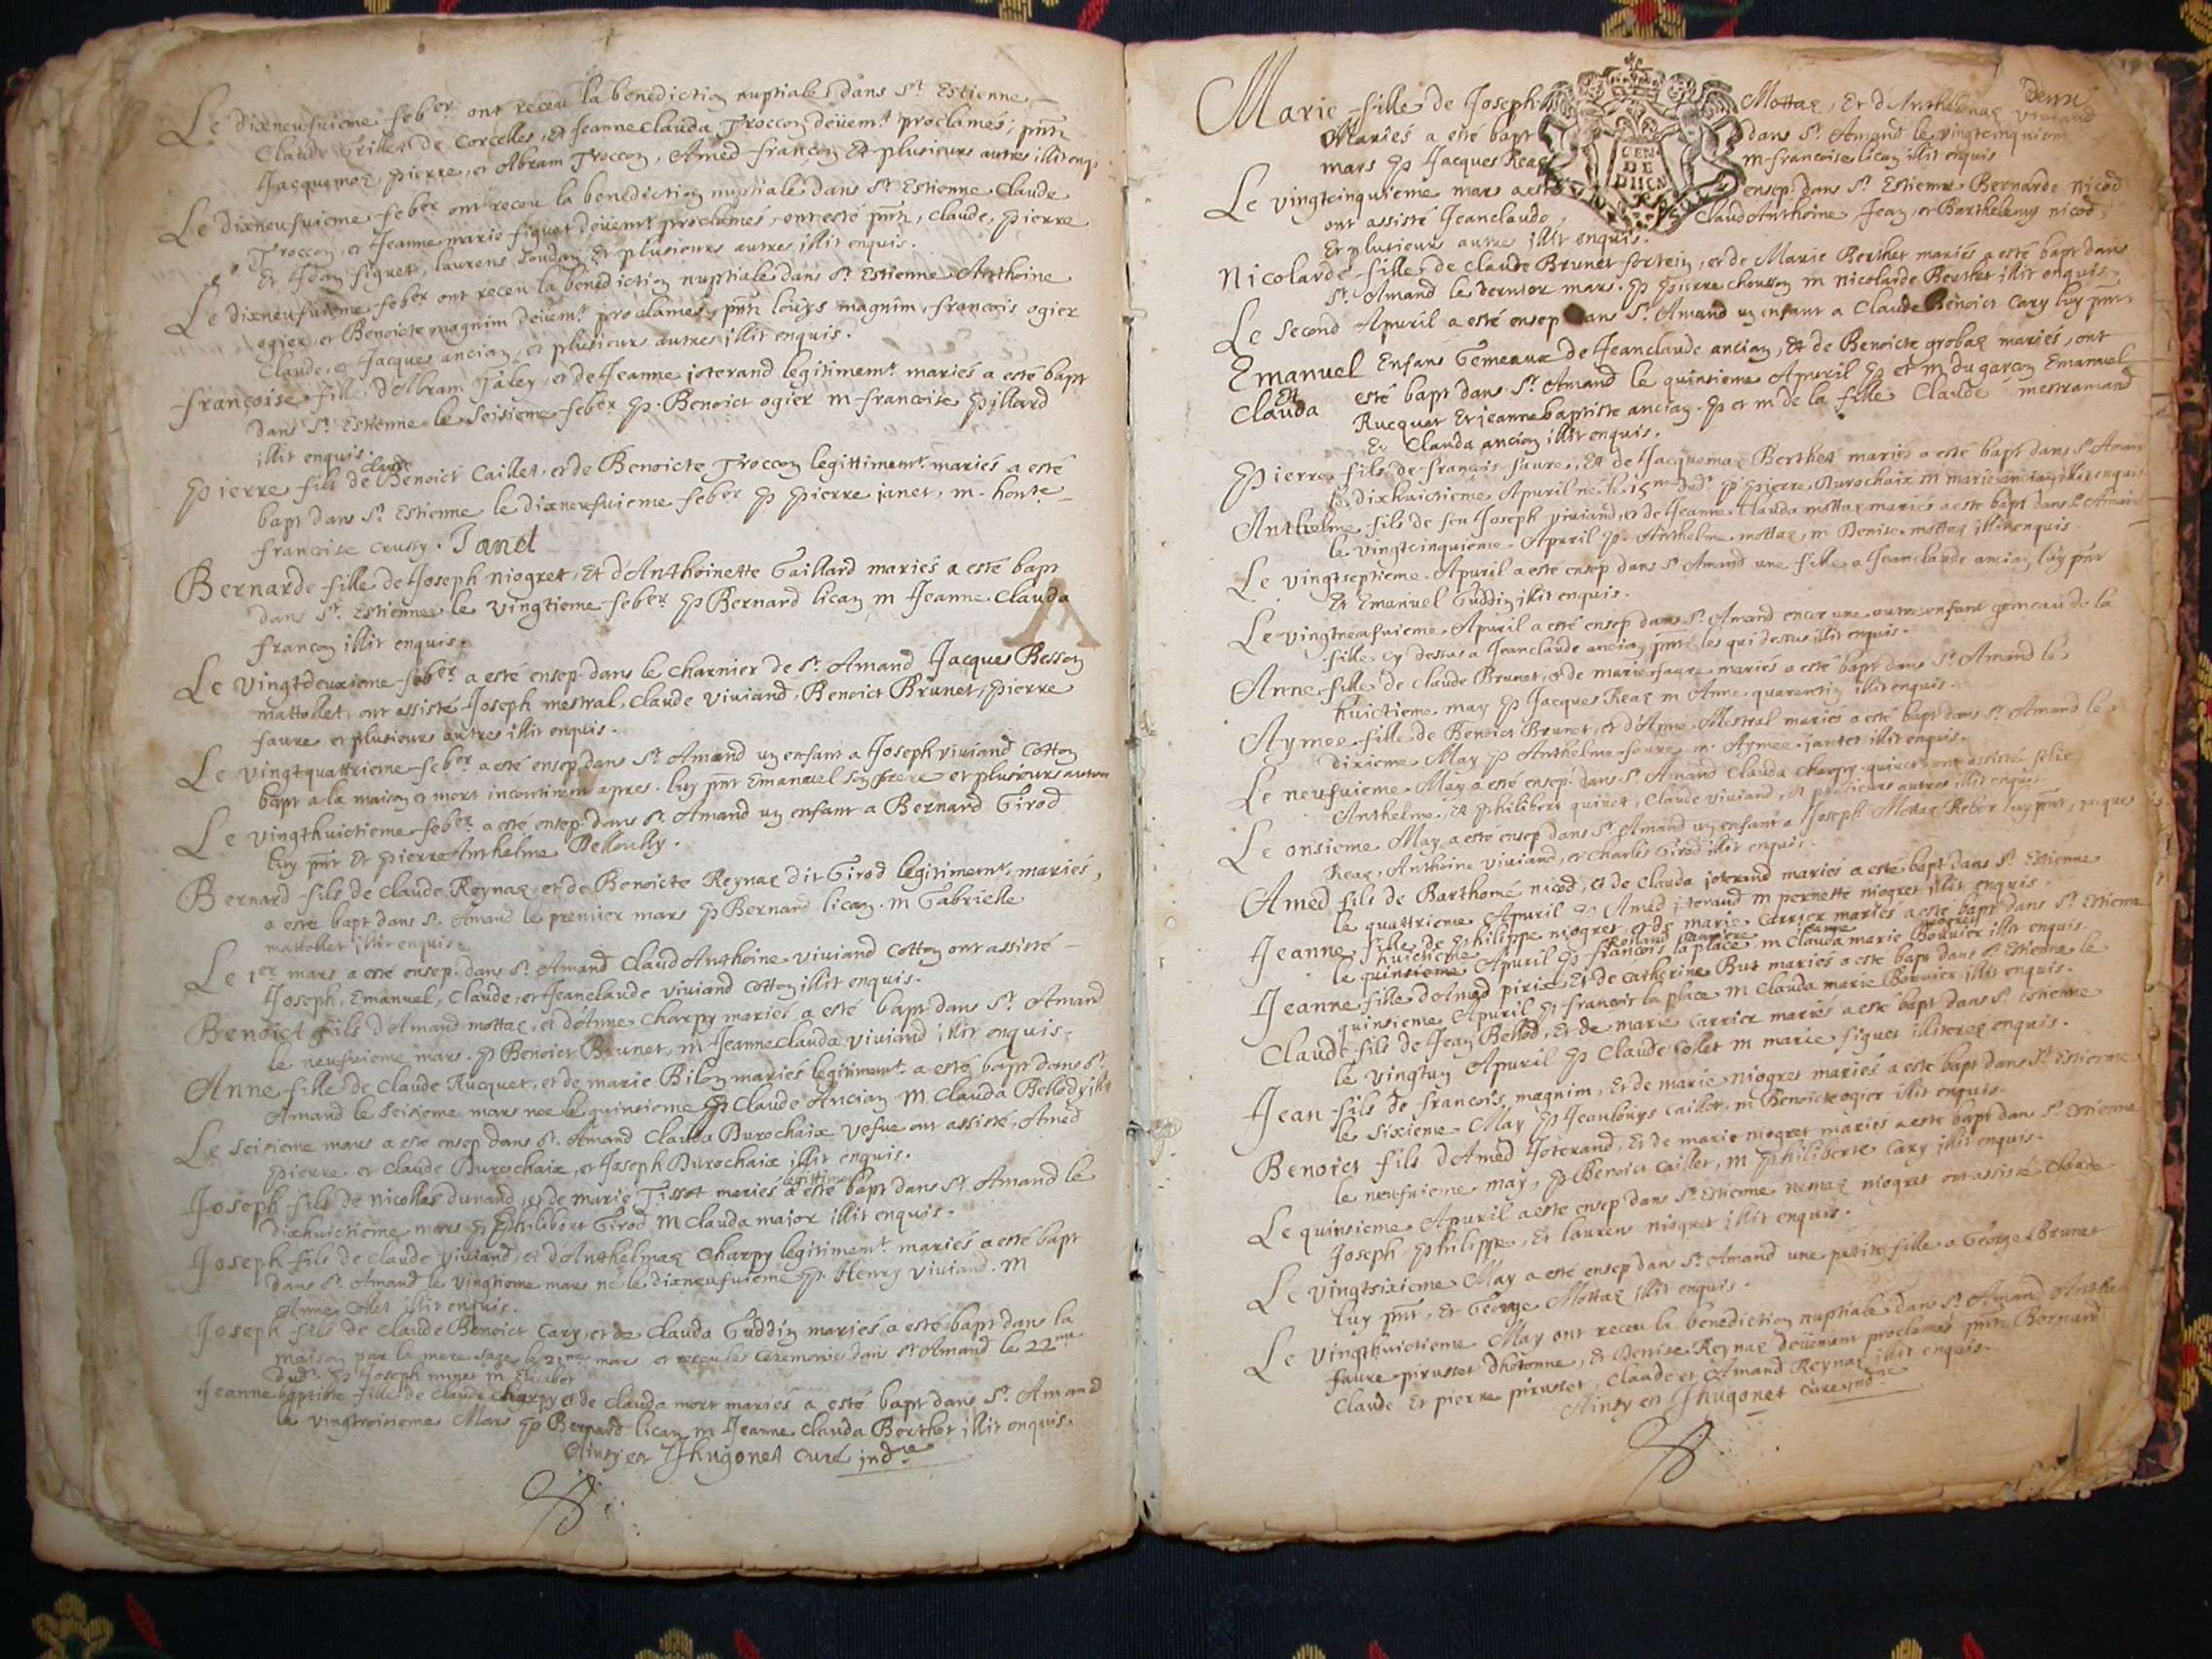 Le dixneufuieme feber ont receu la benediction nuptiale dans St Estienne
Claude Grillet de Corcelles, et Jeanne Clauda Troccon deüemt proclamés, pnts
Jacquemoz, pierre, et Abram Troccon, Amed françon Et plusieurs autres illit enqs
Le dixneufuieme feber ont receu la benediction nuptiale dans St Estienne Claude
Troccon, et Jeanne marie figuet deüemt proclamés, ont esté pnts, Claude, pierre
Et figuet, laurens soudan Et plusieurs autres illit enquis.
Le dixneufuieme feber ont receu la benediction nuptiale dans St Estienne Anthoine
ogier et Benoicte magnim deüemt proclamés, pnts louys magnim, francois ogier
Claude, et Jacques ancian, et plusieurs autres illit enquis.
françoise fille d'Abram Jaley, et de Jeanne joterand legitimemt mariés a esté bapt
dans St Estienne le seisieme feber p. Benoict ogier m francoise pillard
illit enquis.
Claude
pierre fils de Benoict Caillet, et de Benoicte Troccon legittimemt mariés a esté
bapt dans St Estienne le dixneufuieme feber p pierre janet, m. honte
francoise crussy. Janet
Bernarde fille de Joseph niogret, Et d'Anthoinette Gaillard mariés a esté bapt
dans St Estienne le vingtieme feber p Bernard lican m Jeanne Clauda
françon illit enquis.
Le vingtdeuxieme feber a esté ensep. dans le charnier de St Amand Jacques Besson
mattollet, ont assisté Joseph mestral, Claude viviand, Benoict Brunet, pierre
faure et plusieurs autres illit enquis.
Le vingtquattrieme feber a esté ensep dans St Amand un enfant a Joseph viviand Cotton
bapt a la maison et mort incontinent apres. luy pnt Emanuel son frere et plusieurs autres
Le vingthuictieme feber a esté ensep. dans St Amand un enfant a Bernard Girod
luy pnt Et pierre Anthelme
Bernard fils de Claude Reynaz et de Benoicte Reynaz dit Girod legitimemt mariés,
a esté bapt dans St Amand le premier mars p Bernard lican. m Gabrielle
mattollet illit enquis.
Le 1er mars a esté ensep. dans St Amand Claud Anthoine viviand Cotton ont assisté
Joseph, Emanuel, Claude, et Jeanclaude viviand Cotton illit enquis.
Benoict fils d'Amand mottaz, et d'Anne Charpy mariés a esté bapt dans St Amand
le neufuieme mars. p Benoict Brunet, m Jeanne Clauda viviand illit enquis
Anne fille de Claude Rucquet, et de marie Bilon mariés legitimemt a esté bapt dans St
Amand le seisieme mars née le quinsieme p Claude Ancian m Clauda Bellod illit
Le seisieme mars a esté ensep dans St Amand Clauda Durochaix vefue ont assisté, Amed
pierre et Claude Durochaix, et Joseph Durochaix illit enquis.
legittimemt
Joseph fils de nicollas dunand, et de marie Tissot mariés a esté bapt dans St Amand le
dixhuictieme mars p philibert Girod, m Clauda major illit enquis.
Joseph fils de Claude viviand, et d'Anthelmaz Charpy legitimemt mariés a esté bapt
dans St Amand le vingtieme mars né le dixneufuieme p. Henry viviand. m
Anne Collet illit enquis.
Joseph fils de Claude Benoict Cary, et de Clauda Guddin mariés a esté bapt dans la
maison par la mere sage le 21me mars et receu les ceremonies dans St Amand le 22me
dud. p Joseph m
Jeanne baptiste fille de Claude Charpy et de Clauda mort mariés a esté bapt dans St Amand
le vingtroisieme Mars p Bernard lican m Jeanne Clauda Berthet illit enquis.
Ainsy est Jhugonet curé indne
Marie fille de Joseph Mottaz, Et d'Anthelmaz viviand
Mariés a esté bapt dans St Amand le vingtcinquieme
mars p Jacques Reaz m francoise lican illit enquis
GEN DE DIION
Le vingtcinquieme mars a esté ensep. dans St Estienne Bernarde nicod
ont assisté Jeanclaude, Claud Anthoine Jean, et Barthelemy nicod,
Et plusieurs autres illit enquis.
Nicolarde fille de Claude Brunet fortein, et de Marie Berthet mariés a esté bapt dans
St Amand le dernier mars. p pierre chousson m nicolarde Berthet illit enquis
Le second Apuril a esté ensep dans St Amand un enfant a Claude Benoict Cary luy pnt
Emanuel Enfans Gemeaux de Jeanclaude ancian, Et de Benoicte grobaz mariés, ont
Et
Clauda esté bapt dans St Amand le quinsieme Apuril p et m du garçon Emanuel
Rucquet Et jeanne baptiste ancian. p et m de la fille Claude mestramand
Et Clauda ancian illit enquis.
Pierre fils de françois faure, Et de Jacquemaz Berthet mariés a esté bapt dans St Amand
le dixhuictieme Apuril né le 15me dud. p pierre Durochaix m marie ancian illit enquis
Anthelme fils de feu Joseph viviand, et de Jeanne Clauda mottaz mariés a esté bapt dans St Amand
le vingtcinquieme Apuril p. Anthelme mottaz, m Denise mottaz illit enquis.
Le vingtseptieme Apuril a esté ensep dans St Amand une fille a Jeanclaude ancian luy pnt
Et Emanuel Guddin illit enquis.
Le vingtneufuieme Apuril a esté ensep dans St Amand encor une autre enfant gemeau de la
fille cy dessus a Jeanclaude ancian pnts les qui dessus illit enquis.
Anne fille de Claude Brunet, et de marie fagre mariés a esté bapt dans St Amand le
huictieme may p Jacques Reaz m Anne quarentin illit enquis.
Aymee fille de Benoict Brunet, et d'Anne Mestral mariés a esté bapt dans St Amand le
dixieme May p Anthelme faure m. Aymee jantet illit enquis.
Le neufuieme May a esté ensep. dans St Amand Clauda Charpy quinet ont assisté felix,
Anthelme, Et philibert quinet, Claude viviand, et plusieurs autres illit enquis
Le onsieme May a esté ensep dans St Amand un enfant a Joseph Mottaz Reber luy pnt, jacques
Reaz, Anthoine viviand, et Charles Girod illit enquis.
Amed fils de Barthomé nicod, et de Clauda joterand mariés a esté bapt dans St Estienne
le quattrieme Apuril p Amed joterand m pernette niogret illit enquis.
Jeanne fille de philippe niogret et de marie Carrier mariés a esté bapt dans St Estienne
huictieme
le quinsieme Apuril p francois la place m Clauda marie Bouvier illit enquis.
Jeanne fille d'Amed pirix Et de Catherine But mariés a esté bapt dans St Estienne le
quinsieme Apuril p francois la place m Clauda marie Bouvier illit enquis.
Claude fils de Jean Bellod, Et de marie Carrier mariés a esté bapt dans St Estienne
le vingtun Apuril p Claude Collet m marie figuet illiterez enquis.
Jean fils de francois magnim, Et de marie niogret mariés a esté bapt dans St Estienne
le sixieme May p Jeanlouys Caillet, m Benoicte ogier illit enquis.
Benoict fils d'Amed Joterand, Et de marie niogret mariés a esté bapt dans St Estienne
le neufuieme may, p Benoict Caillet, m philiberte Cary illit enquis.
Le quinsieme Apuril a esté ensep dans St Estienne niogret ont assisté Claude
Joseph philippe, Et laurens niogret illit enquis.
Le vingtsixieme May a esté ensep dans St Amand une petite fille a George Brunet
luy pnt, Et George Mottaz illit enquis.
Le vingthuictieme May ont receu la benediction nuptiale dans St Amand Anthe
faure pirusset d'hotonne, Et Denise Reynaz deüement proclamés pnts Bernard
Claude Et pierre pirusset, Claude et Amand Reynaz illit enquis.
Ainsy est Jhugonet curé indne